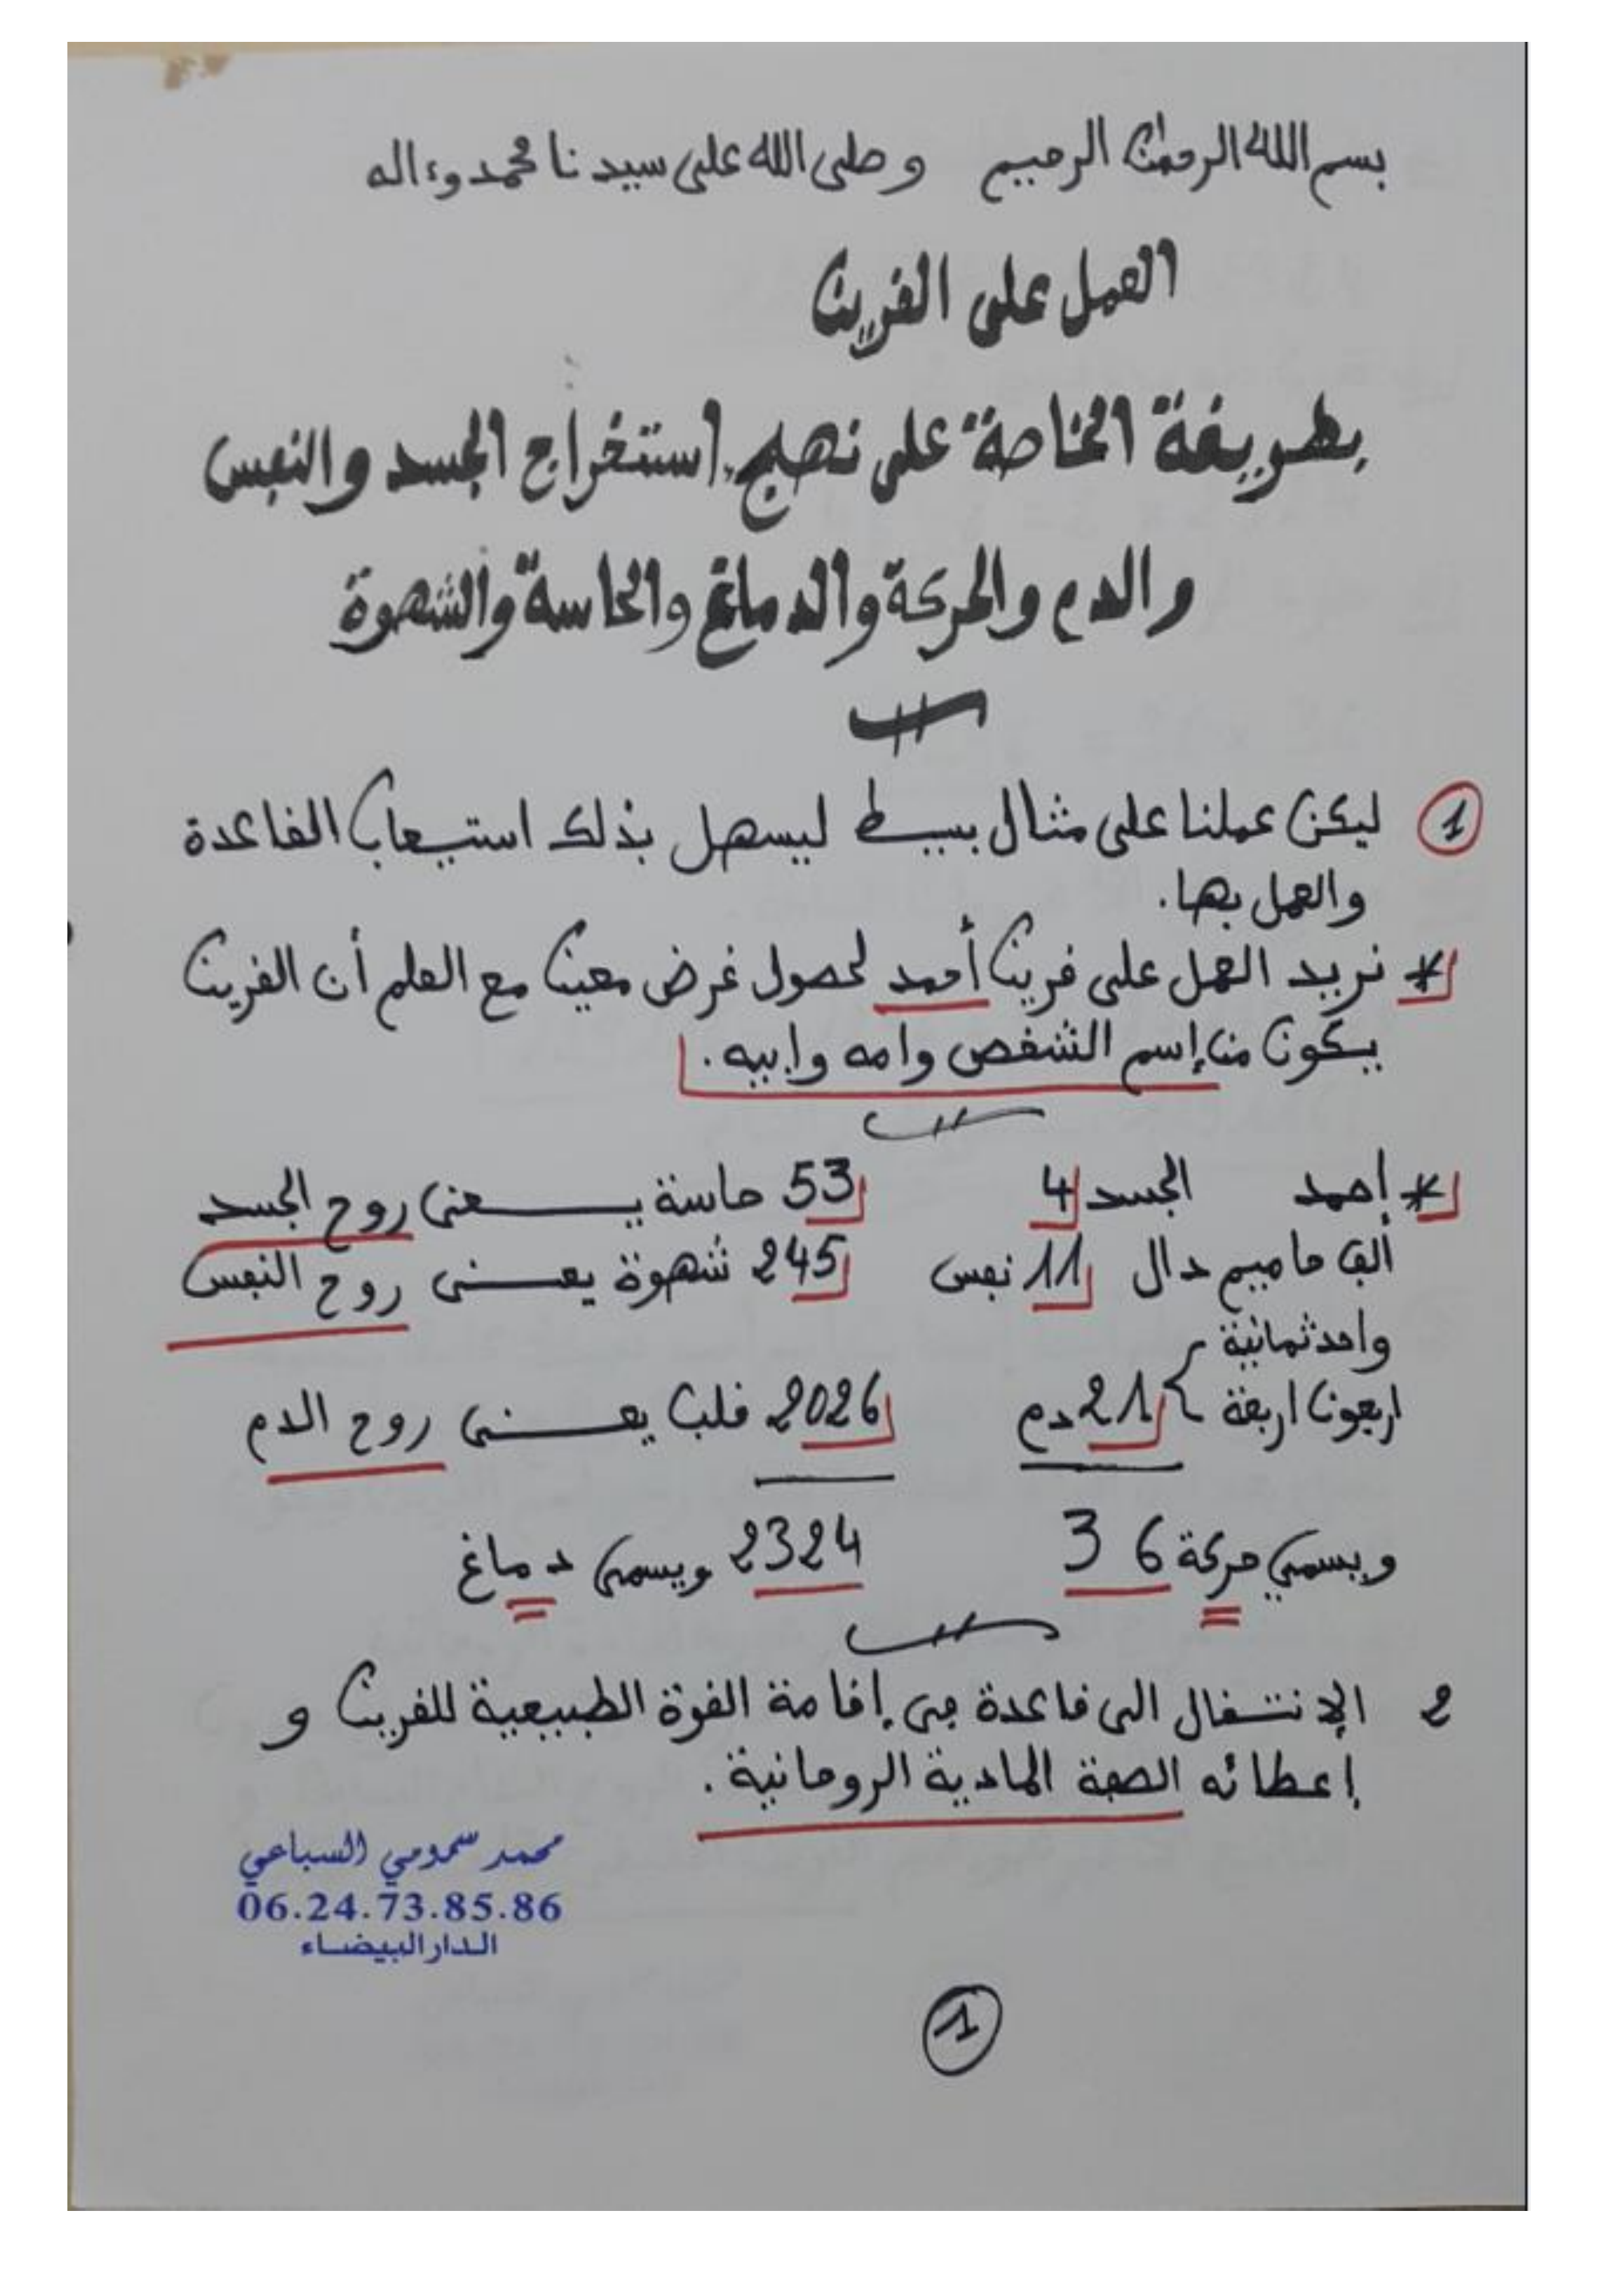 بسم الله الرحمن الرحيم وصلى الله على سيدنا محمد وءاله
العمل على القرين
بطريقة الخاصة على نهج استخراج الجسد والنفس
والدم والحركة والدماغ والحاسة والشهوة
1 ليكن عملنا على مثال بسيط ليسهل بذلك استيعاب القاعدة
والعمل بها.
* نريد العمل على قرين أحمد لحصول غرض معين مع العلم أن القرين
يكون من إسم الشخص وامه وابيه.
* أحمد الجسد 4 53 حاسة يعني روح الجسد
ألف حا ميم دال 11 نفس 245 شهوة يعنى روح النفس
واحد ثمانية
اربعون اربعة 21 دم 2026 قلب يعنى روح الدم
ويسمى حركة 36 2324 ويسمى دماغ
2 الإنتقال الى قاعدة في إقامة القوة الطبيعية للقرين و
إعطائه الصفة المادية الروحانية.
محمد سمومي السباعي
06.24.73.85.86
الدار البيضاء
1